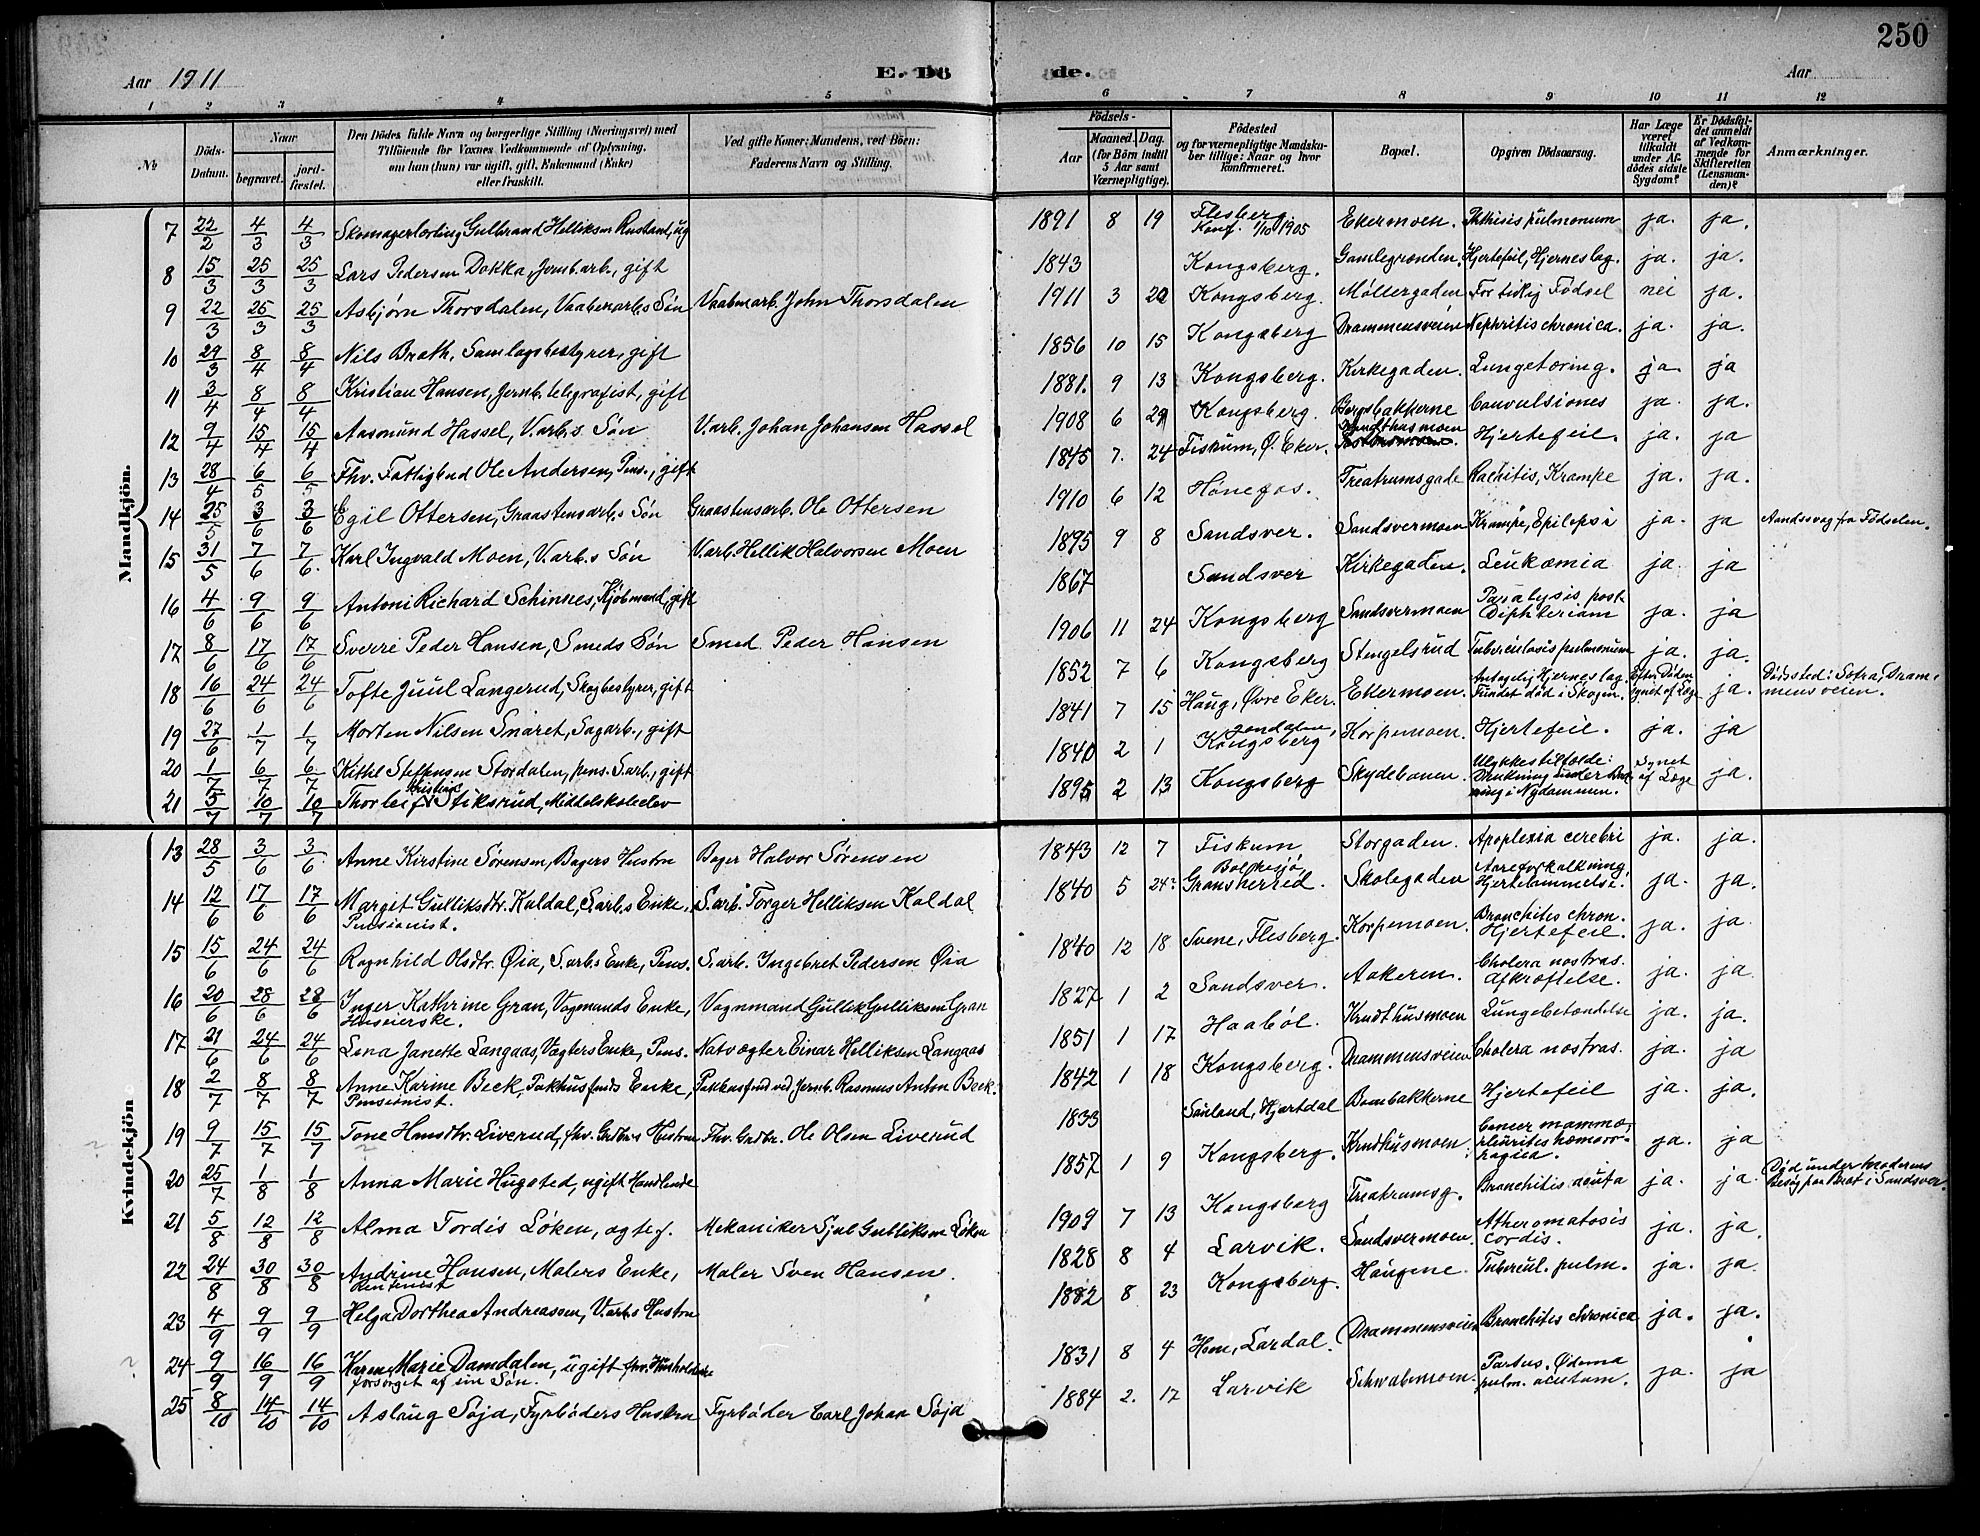 250
Aar 1911
E. Dö
de.
Aar
1 2 3 4 5 6 7 8 9 10 11 12
№
Döds-Datum.
Naar
begravet.
jord-fæstet.
Den Dödes fulde Navn og borgerlige Stilling (Næringsvei) med
Tilföiende for Voxnes Vedkommende af Oplysning,
om han (hun) var ugift, gift, Enkemand (Enke)
eller fraskilt.
Ved gifte Koner: Mandens, ved Börn:
Faderens Navn og Stilling.
Födsels-
Aar
Maaned. Dag.
(for Börn indtil
5 Aar samt
Værnepligtige).
Födested
og for værnepligtige Mandska-
ber tillige: Naar og hvor
konfirmeret.
Bopæl.
Opgiven Dödsaarsag.
Har Læge
været
tilkaldt
under Af-
dödes sidste
Sygdom?
Er Dödsfal-
det anmeldt
af Vedkom-
mende for
Skifteretten
(Lensman-
den)?
Anmærkninger.
Mandkjön.
7 22/2 4/3 4/3 Skomagerlærling Gulbrand Helliksen Rustand, ug
8 15/3 25/3 25/3 Lars Pedersen Dokka, Jernb.arb., gift
9 22/3 25/3 25/3 Asbjørn Thorsdalen, Vaabenarb.s Søn Vaabenarb. John Thorsdalen
10 29/3 8/4 8/4 Nils Brath, Samlagsbestyrer, gift
11 3/4 8/4 8/4 Kristian Hansen, Jernb. telegrafist, gift
12 9/4 15/4 15/4 Aasmund Hassel, V.arb.s Søn V.arb. Johan Johansen Hassel
13 28/4 6/5 6/5 Fhv. Fattigbud Ole Andersen, Pens., gift
14 25/5 3/6 3/6 Egil Ottersen, Graastensarb.s Søn Graastensarb. Ole Ottersen
15 31/5 7/6 7/6 Karl Ingvald Moen, V.arb.s Søn V.arb. Hellik Halvorsen Moen
16 4/6 9/6 9/6 Antoni Richard Schinnes, Kjøbmand, gift
17 8/6 17/6 17/6 Sverre Peder Hansen, Smeds Søn Smed Peder Hansen
18 16/6 24/6 24/6 Tofte Juul Langerud, Skogbestyrer, gift
19 27/6 1/7 1/7 Morten Nilsen Snaret, Sagarb., gift
20 1/7 6/7 6/7 Kittil Steffensen Stordalen, pens. S.arb., gift
21 5/7 10/7 10/7 Thorleif Kristian Stiksrud, Middelskoleelev
1891 8 19 Flesberg Konf. 1/10 1905 Ekermoen. Phthisis pulmonum ja. ja.
1843 Kongsberg. Gamlegrænden. Hjertefeil, Hjerneslag. ja. ja.
1911 3 22 Kongsberg. Møllergaden For tidlig Fødsel nei ja.
1856 10 15 Kongsberg Drammensveien Nephritis chronica. ja. ja.
1881. 9 13 Kongsberg. Kirkegaden. Lungetæring. ja ja
1908 6 29 Kongsberg. Bergsbakkerne Convulsiones ja. ja.
1845 7. 24 Fiskum, Ø. Eker. Krudthusmoen Hjertefeil. ja. ja
1910 6 12 Hønefos. Treatrumsgade Rachitis, Krampe ja. ja.
1895 9 8 Sandsver. Sandsvermoen Krampe, Epilepsi ja. ja Aandssvag fra Fødselen.
1867 Sandsver Kirkegaden. Leukæmia ja. ja
1906 11 24 Kongsberg Sandsvermoen Paralysis post Diphteriam ja. ja
1852 7 6 Kongsberg Stengelsrud Tuberculosis pulmonum ja. ja.
1841 7 15 Haug, Øvre Eker. Ekermoen. Antagelig Hjerneslag. Fundet død i Skogen. Efter Døden synet af Læge ja. Dødssted: Sætra, Drammensveien.
1840 2 1 Jondalen, Kongsberg Korpemoen. Hjertefeil. ja. ja
1895 2 13 Kongsberg Skydebanen. Ulykkestilfælde: Drukning under Badning i Nydammen. Synet af Læge ja.
Kvindekjön
13 28/5 3/6 3/6 Anne Kirstine Sørensen, Bagers Hustru Bager Halvor Sørensen
14 12/6 17/6 17/6 Margit Gulliksdtr. Kaldal, S.arb.s Enke, S.arb. Torger Helliksen Kaldal
Pensionist.
15 15/6 24/6 24/6 Ragnhild Olsdtr. Øia, S.arb.s Enke, Pens. S.arb. Ingebret Pedersen Øia
16 20/6 28/6 28/6 Inger Kathrine Gran, Vognmands Enke, Vognmand Gullik Gulliksen Gran
Huseierske.
17 21/6 24/6 24/6 Lena Janette Langaas, Vægters Enke, Pens. Natvægter Einar Helliksen Langaas
18 2/7 8/7 8/7 Anne Karine Beck, Pakhusfmds Enke, Pakhusfmd ved Jernb. Rasmus Anton Beck.
Pensionist.
19 9/7 15/7 15/7 Tone Hansdtr. Liverud, fhv. Grdbr.s Hustru Fhv. Grdbr. Ole Olsen Liverud
20 25/7 1/8 1/8 Anna Marie Hugsted, ugift Handlende
21 5/8 12/8 12/8 Alma Tordis Løken, ægtef. Mekaniker Sjul Gulliksen Løken
22 24/8 30/8 30/8 Andrine Hansen, Malers Enke, Maler Sven Hansen.
Rentenist
23 4/9 9/9 9/9 Helga Dorthea Andreassen, V.arb.s Hustru
24 9/9 16/9 16/9 Karen Marie Damdalen, ugift fhv. Husholderske
forsørget af sin Søn.
25 8/10 14/10 14/10 Aslaug Søjd, Fyrbøders Hustru Fyrbøder Carl Johan Søjd
1843 12 7 Fiskum Storgaden. Apoplexia cerebri ja. ja.
1840 5 24 Bolkesjø Gransherred. Skolegaden Aareforkalkning, Hjertelammelse. ja. ja.
1840 12 18 Svene, Flesberg. Korpemoen. Bronchitis chron. Hjertefeil. ja. ja
1827 1 2 Sandsver. Aakeren. Cholera nostras. Afkræftelse. ja. ja
1851 1 17 Haabøl. Krudthusmoen Lungebetændelse ja. ja.
1842 1 18 Kongsberg. Drammensveien Cholera nostras. ja. ja
1833 Sauland, Hjartdal Bombakkerne Hjertefeil ja. ja.
1857 1 9 Kongsberg. Krudthusmoen. Cancer mammæ, pleuritis hæmorrhagica. ja. ja
1909 7 13 Kongsberg Treatrumsg. Bronchitis acuta ja. ja. Død under Moderens Besøg paa Bræt i Sandsver.
1828 8 4 Larvik. Sandsvermoen. Atheromatosis cordis. ja. ja.
1882 8 23 Kongsberg. Haugene. Tubercul. pulm. ja. ja.
1831 8 4 Hem, Lardal. Drammensveien Bronchitis chronica ja. ja.
1884 2. 17 Larvik Schwabemoen. Partus. Ødema pulm. acutum. ja. ja